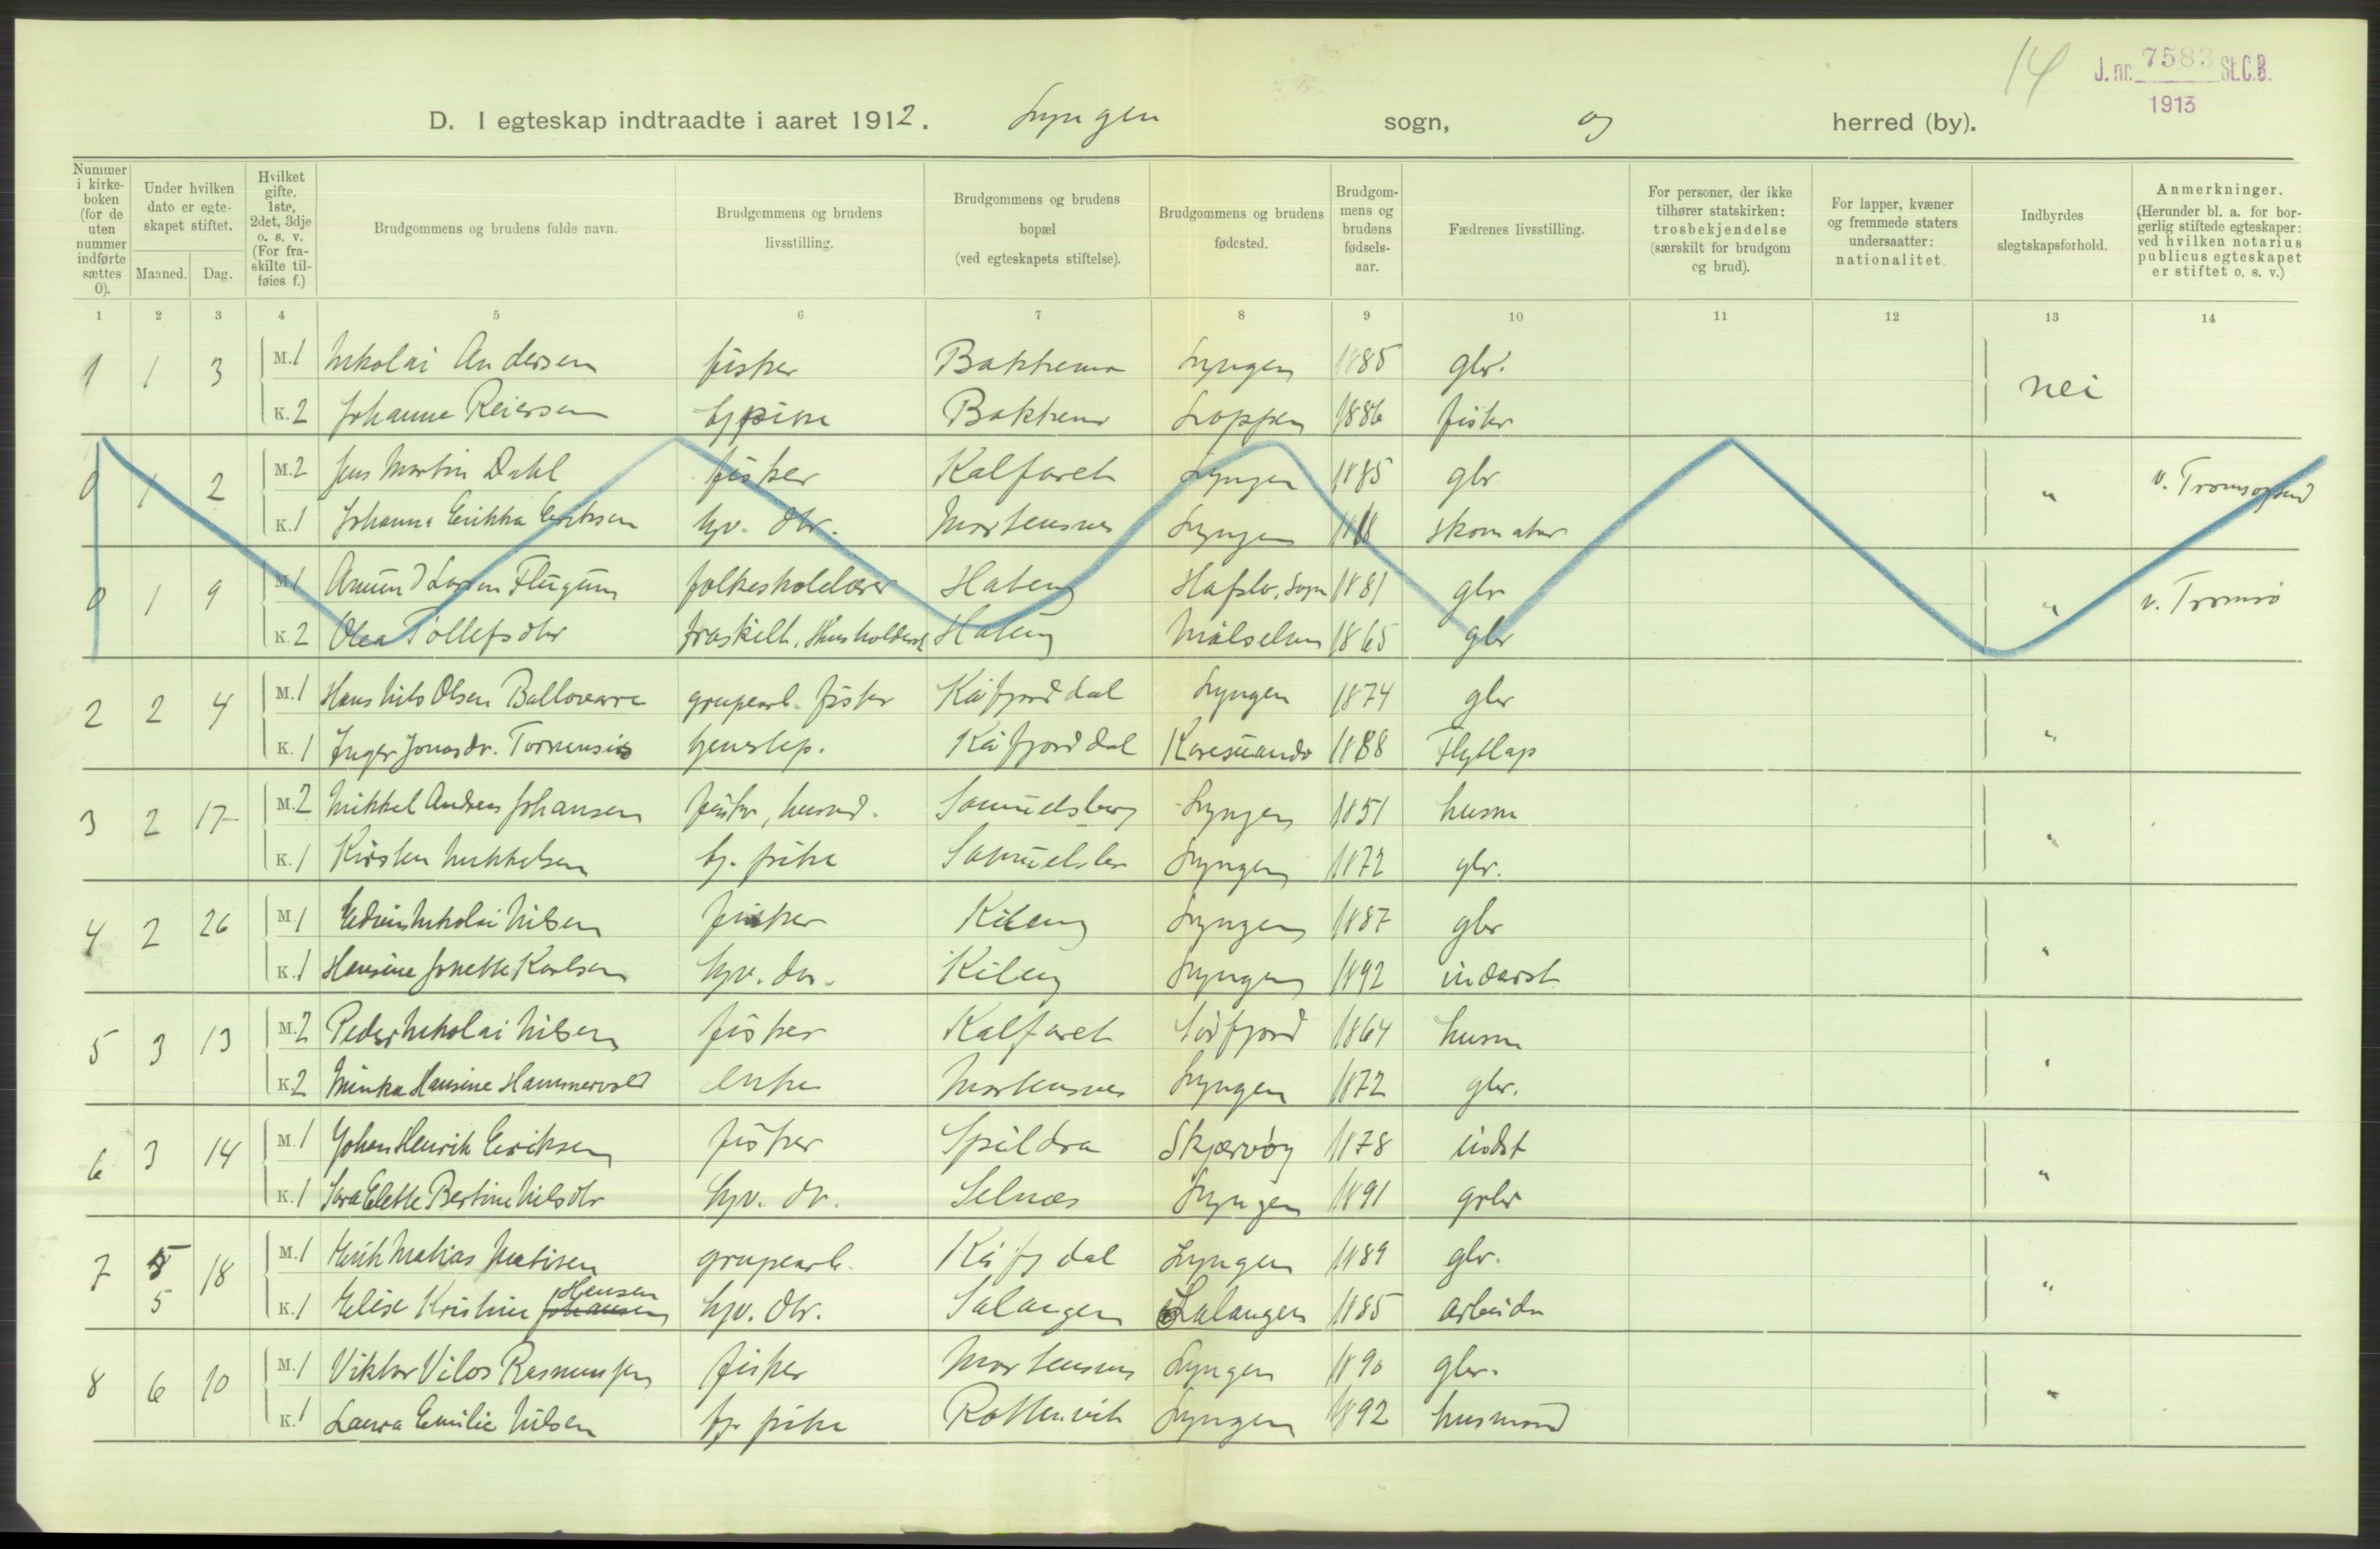 14
J. nr. 7583 St.C.B.
1913
D. I egteskap indtraadte i aaret 1912. Lyngen sogn, og herred (by).
Nummer i kirke-boken (for de uten nummer indførte sættes 0).
Under hvilken dato er egte-skapet stiftet.
Maaned. Dag.
Hvilket gifte. 1ste, 2det, 3dje o. s. v. (For fra-skilte til-føies f.)
Brudgommens og brudens fulde navn.
Brudgommens og brudens livsstilling.
Brudgommens og brudens bopæl (ved egteskapets stiftelse).
Brudgommens og brudens fødested.
Brudgom-mens og brudens fødsels-aar.
Fædrenes livsstilling.
For personer, der ikke tilhører statskirken: trosbekjendelse (særskilt for brudgom og brud).
For lapper, kvæner og fremmede staters undersaatter: nationalitet.
Indbyrdes slegtskapsforhold.
Anmerkninger. (Herunder bl. a. for bor-gerlig stiftede egteskaper: ved hvilken notarius publicus egteskapet er stiftet o. s. v.)
1 2 3 4 5 6 7 8 9 10 11 12 13 14
1 1 3 M. 1 Nikolai Andersen fisker Lyngen 1885 gbr. nei
K. 2 Johanne Reiersen Loppen 1886 fisker
0 1 2 M. 2 Jens Martin Dahl fisker Kalfaret Lyngen 1885 gbr " v. Tromsøsund
K. 1 Johanna Erikka Eriksen hjv. dtr. Mortensnes Lyngen skomaker
0 1 9 M. 1 Amund Larsen Flugum folkeskolelærer Hateng Hafslo, Sogn 1881 gbr " v. Tromsø
K. 2 Olea Tollefsdtr fraskilt. Husholderske Hateng Målselven 1865 gbr
2 2 4 M. 1 Hans Nils Olsen Ballovarre grupearb. fisker Kåfjorddal Lyngen 1874 gbr "
K. 1 Inger Jonasdr. Tornensis tjenestep. Kåfjorddal Karesuando 1888 Flytlap
3 2 17 M. 2 Mikkel Andreas Johansen fisker, husmd. Samuelsberg Lyngen 1851 husm "
K. 1 Kirsten Mikkelsen tj. pike Samuelsber Lyngen 1872 gbr.
4 2 26 M. 1 Edvin Nikolai Nilsen fisker Kileng Lyngen 1887 gbr "
K. 1 Hansine Jonette Karlsen hjv. dtr. Kileng Lyngen 1892 inderst
5 3 13 M. 2 Peder Nikolai Nilsen fisker Kalfaret Sørfjord 1864 husm "
K. 2 Minka Hansine Hammervold enke Mortensnes Lyngen 1872 gbr.
6 3 14 M. 1 Johan Henrik Eriksen fisker Spildra Skjærvøy 1878 indst "
K. 1 Sara Elette Bertine Nilsdtr hjv. dr. Selnæs Lyngen 1891 grbr
7 5 18 M. 1 Erik Matias Matisen grupearb. Kåfj dal Lyngen 1889 gbr. "
5 K. 1 Elise Kristine Johansen Hensen hjv. dtr. Salangen Salangen 1885 arbeider
8 6 10 M. 1 Viktor Vilos Rasmussen fisker Mortensnes Lyngen 1890 gbr. "
K. 1 Laura Emilie Nilsen tj. pike Rottenvik Lyngen 1892 husmand